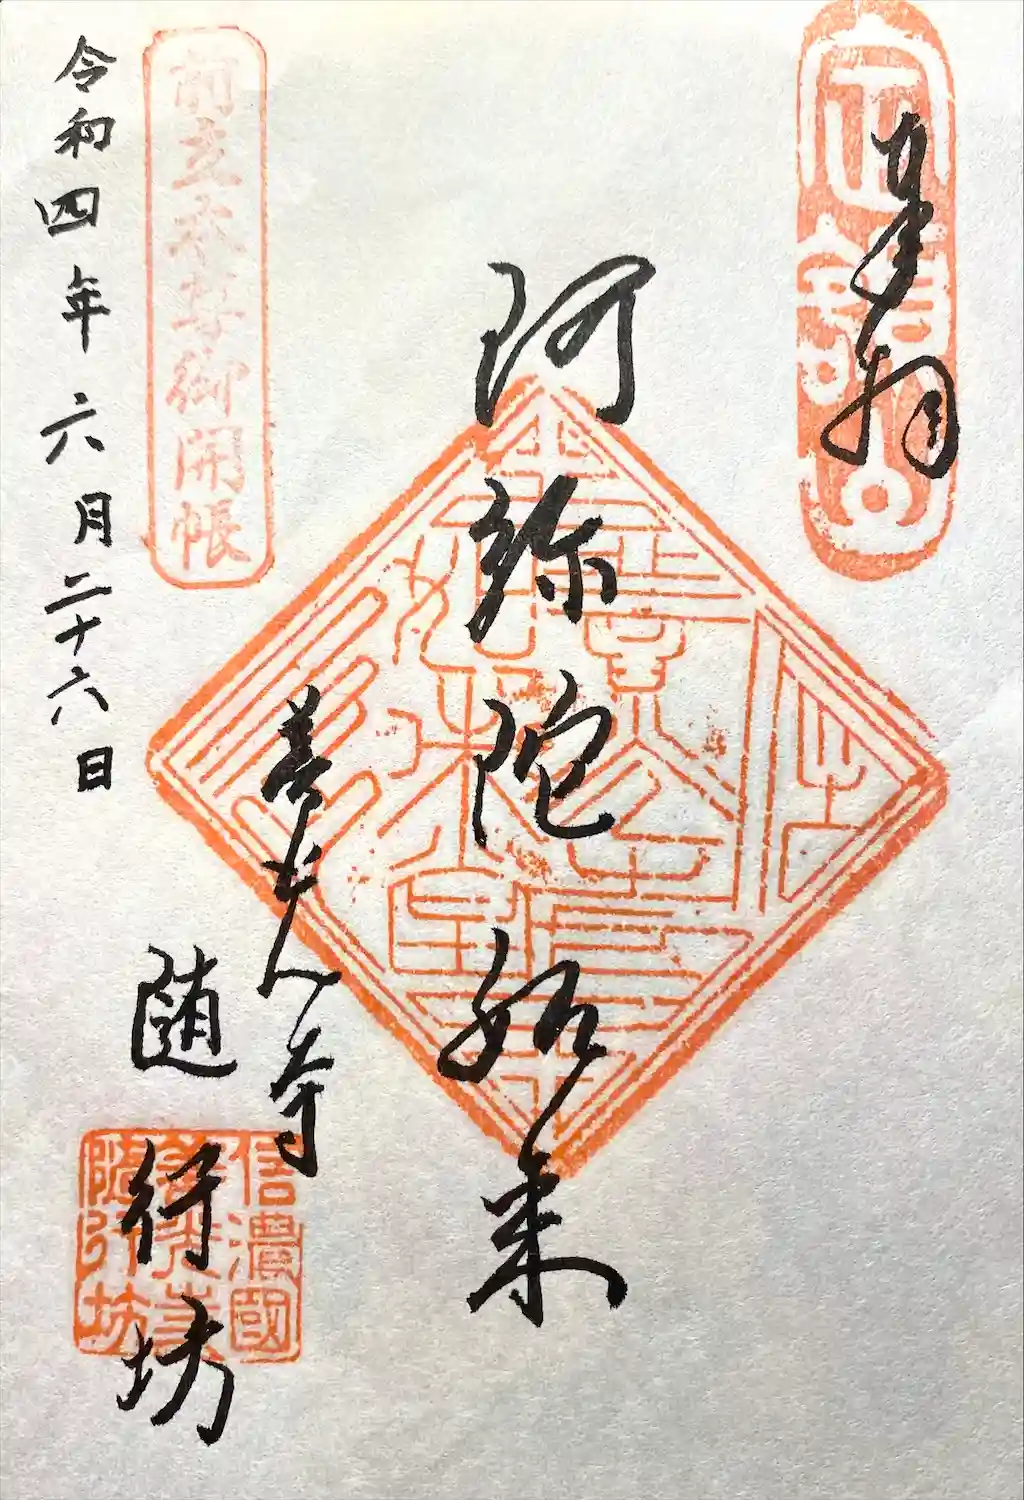 奉拝
阿弥陀如来
善光寺
随行坊
信濃國
善光寺
随行坊
前立本尊御開帳
令和四年六月二十六日